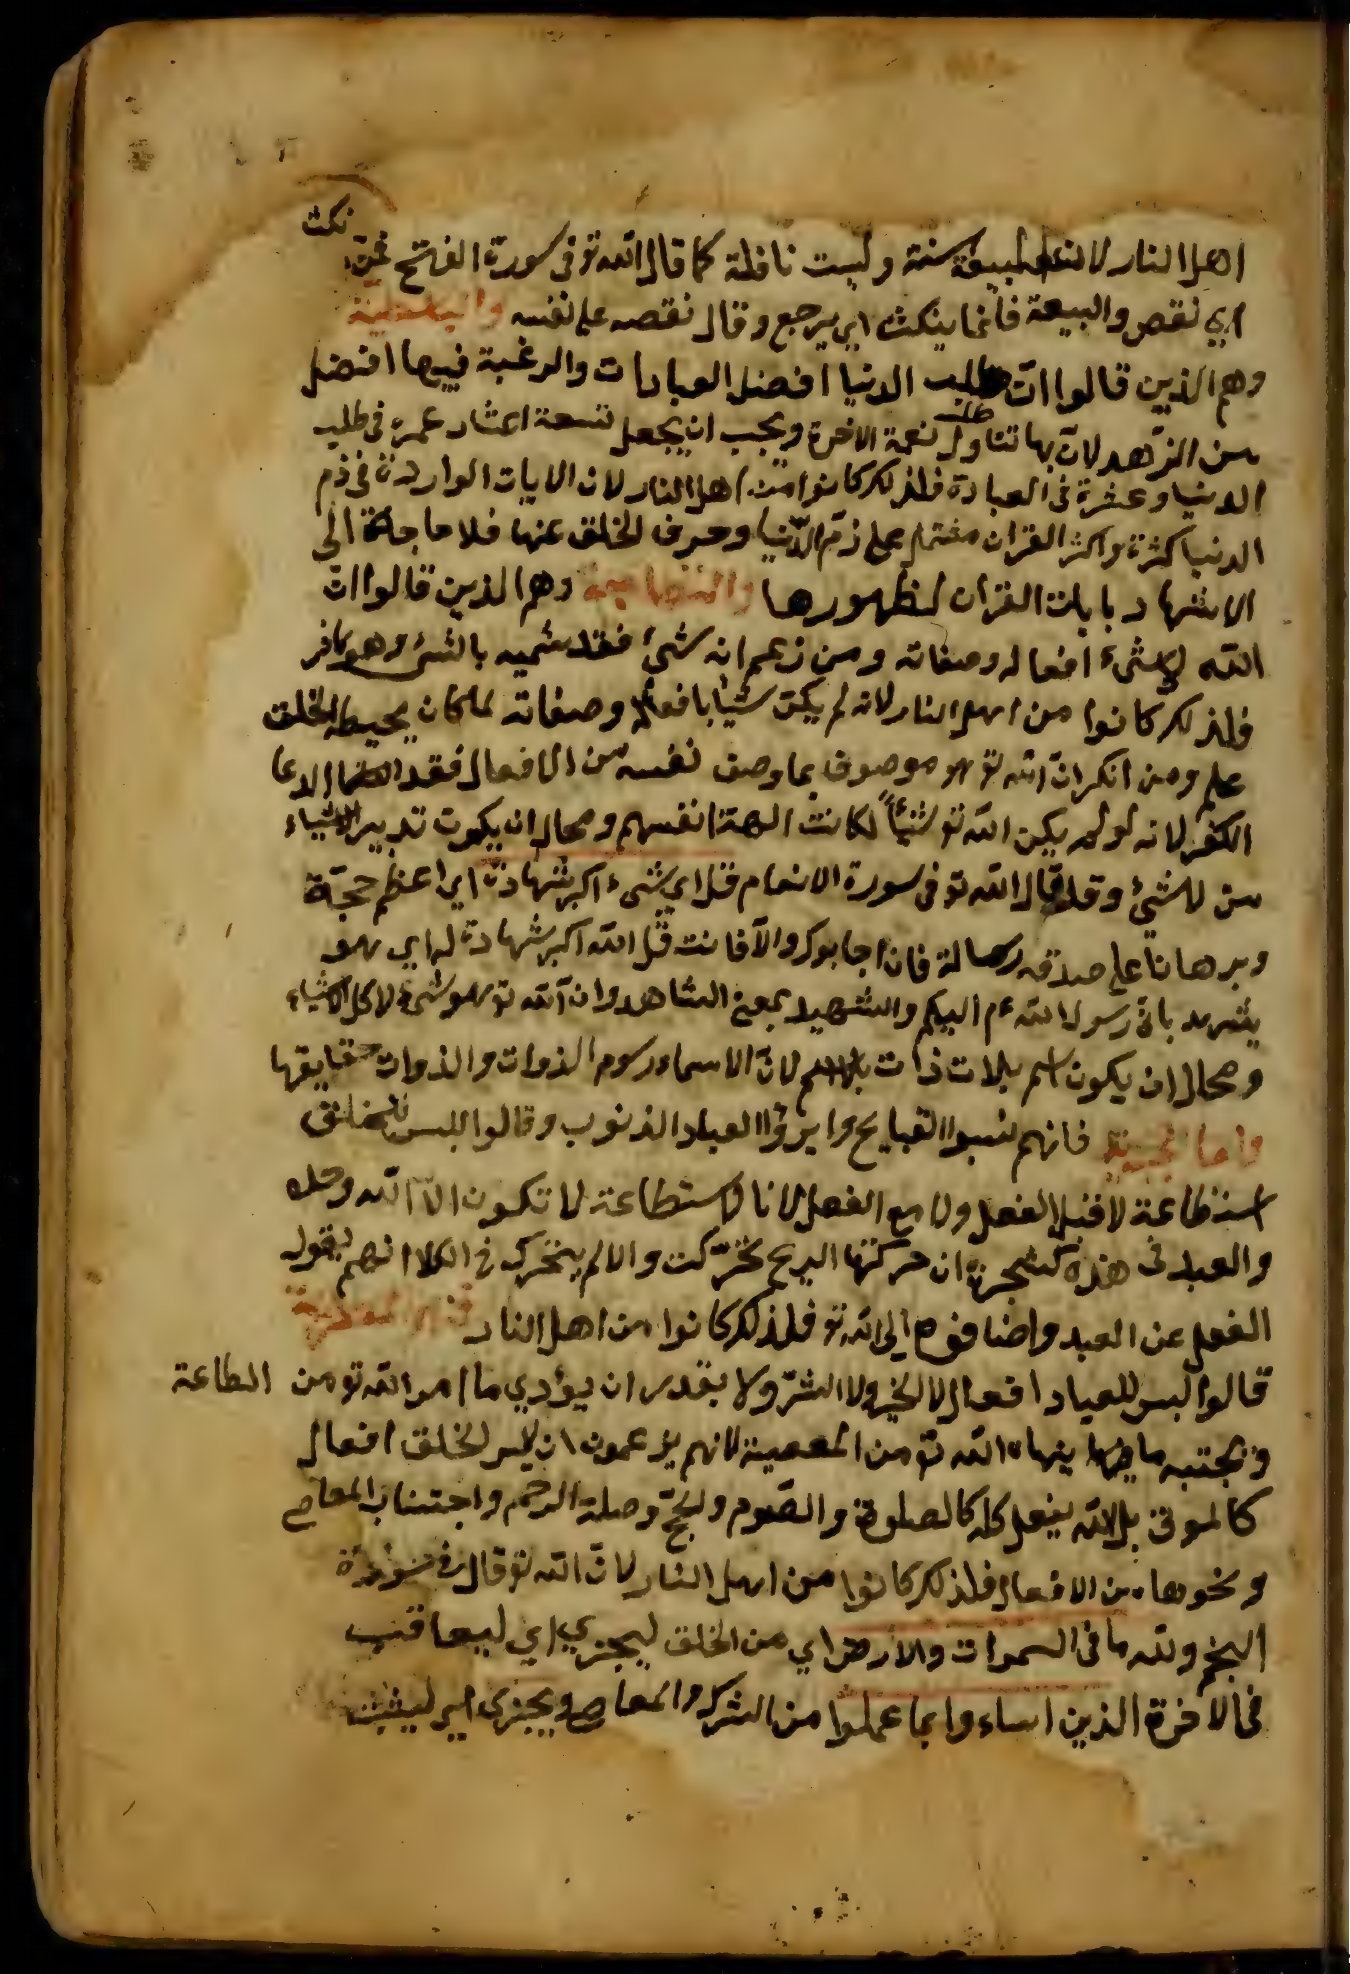 نكث
اهل النار لان البيعة سنة وليست نافلة كما قال الله تو فى سورة الفتح فمن
اي نقص والبيعة فانما ينكث اي يرجع وقال نقصه على نفسه
وهم الذين قالوا انّ طلب الدنيا افضل العبادات والرغبة فيها افضل
من الزّهد لانّ بها تناول نعمة الاخرة ويجب ان يجعل تسعة اعشار عمره فى طلب
الدنيا وعشرة فى العبادة فلذلك كانوا من اهل النار لان الايات الواردة فى ذم
الدنيا كثرة واكثر القران مشتمل على ذم الدّنيا وصرف الخلق عنها فلا حاجة الى
الاشتهاد بايات القران لظهورها وهم الذين قالوا ان
الله لا شىء افعاله وصفاته ومن زعم انه شئ فقد شميه بالشئ وهو كافر
فلذلك كانوا من اهل النار لانه لم يكن شيأ بافعاله وصفاته لما كان يحيط الخلق
علم ومن انكر انّ الله تو هو موصوف بما وصف نفسه من الافعال فقد
الكفر لانه لو لم يكن الله تو شيأً لكانت الهة انفسهم ومحال ان يكون تدبير الاشياء
من لا شئ وقد قال الله تو فى سورة الانعام قل اي شىء اكبر شهادة اي اعظم حجّة
وبرهانا على صدقه رسالة فان اجابوك والّا فانت قل الله اكبر شهادة له اي هو
يشهد بانّ رسول الله ع م اليكم والشهيد بمعنى الشاهد وانّ الله تو هو شئ لا كل الاشياء
ومحال ان يكون اسم بلا ذات بلا اسم لانّ الاسماء رسوم الذوات والذوات حقايقها
واما فانهم نسبوا القبايح وابرؤا العباد الذنوب وقالوا ليس للخلق
استطاعة لا قبل الفعل ولا مع الفعل لانا لاستطاعة لا تكون الّا الله وحده
والعبد فى هذه كشجرة ان حركتها الريح تحرّكت والا لم يتحرك فى الكلا انهم
الفعل عن العبد واضافوه الى الله تو فلذلك كانوا من اهل النار
قالوا ليس للعباد افعال لا الخير ولا الشرّ ولا يقدر ان يؤدي ما امر الله تو من الطاعة
ويجتنبه ما ينهاه الله تو من المعصية لانهم يزعمون ان ليس لخلق افعال
كالموتى بل الله يفعل كله كالصلوة والصّوم والحجّ وصلة الرحم واجتناب المعاصى
ونحوها من الافعال فلذلك كانوا من اهل النار لانّ الله تو قال فى سورة
النجم ولله ما فى السموات والارض اي من الخلق ليجزي اي ليعاقب
فى الاخرة الذين اساءوا بما عملوا من الشرك والمعاصى ويجزى اي